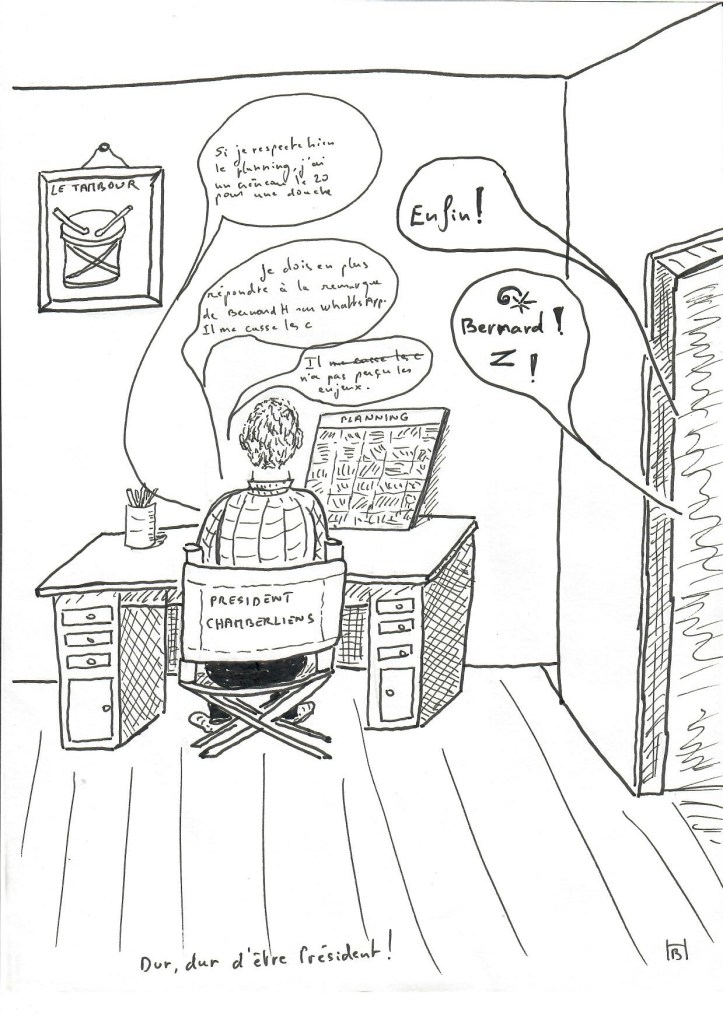 LE TAMBOUR
Si je respecte bien
le planning, j'ai
un créneau le 20
pour une douche
Enfin!
Je dois en plus
répondre à la remarque
de Bernard H sur whattsApp.
Il me casse les c
Bernard!
Z !
Il me casse les c
n'a pas perçu les
enjeux.
PLANNING
PRESIDENT
CHAMBERLIENS
Dur, dur d'être Président!